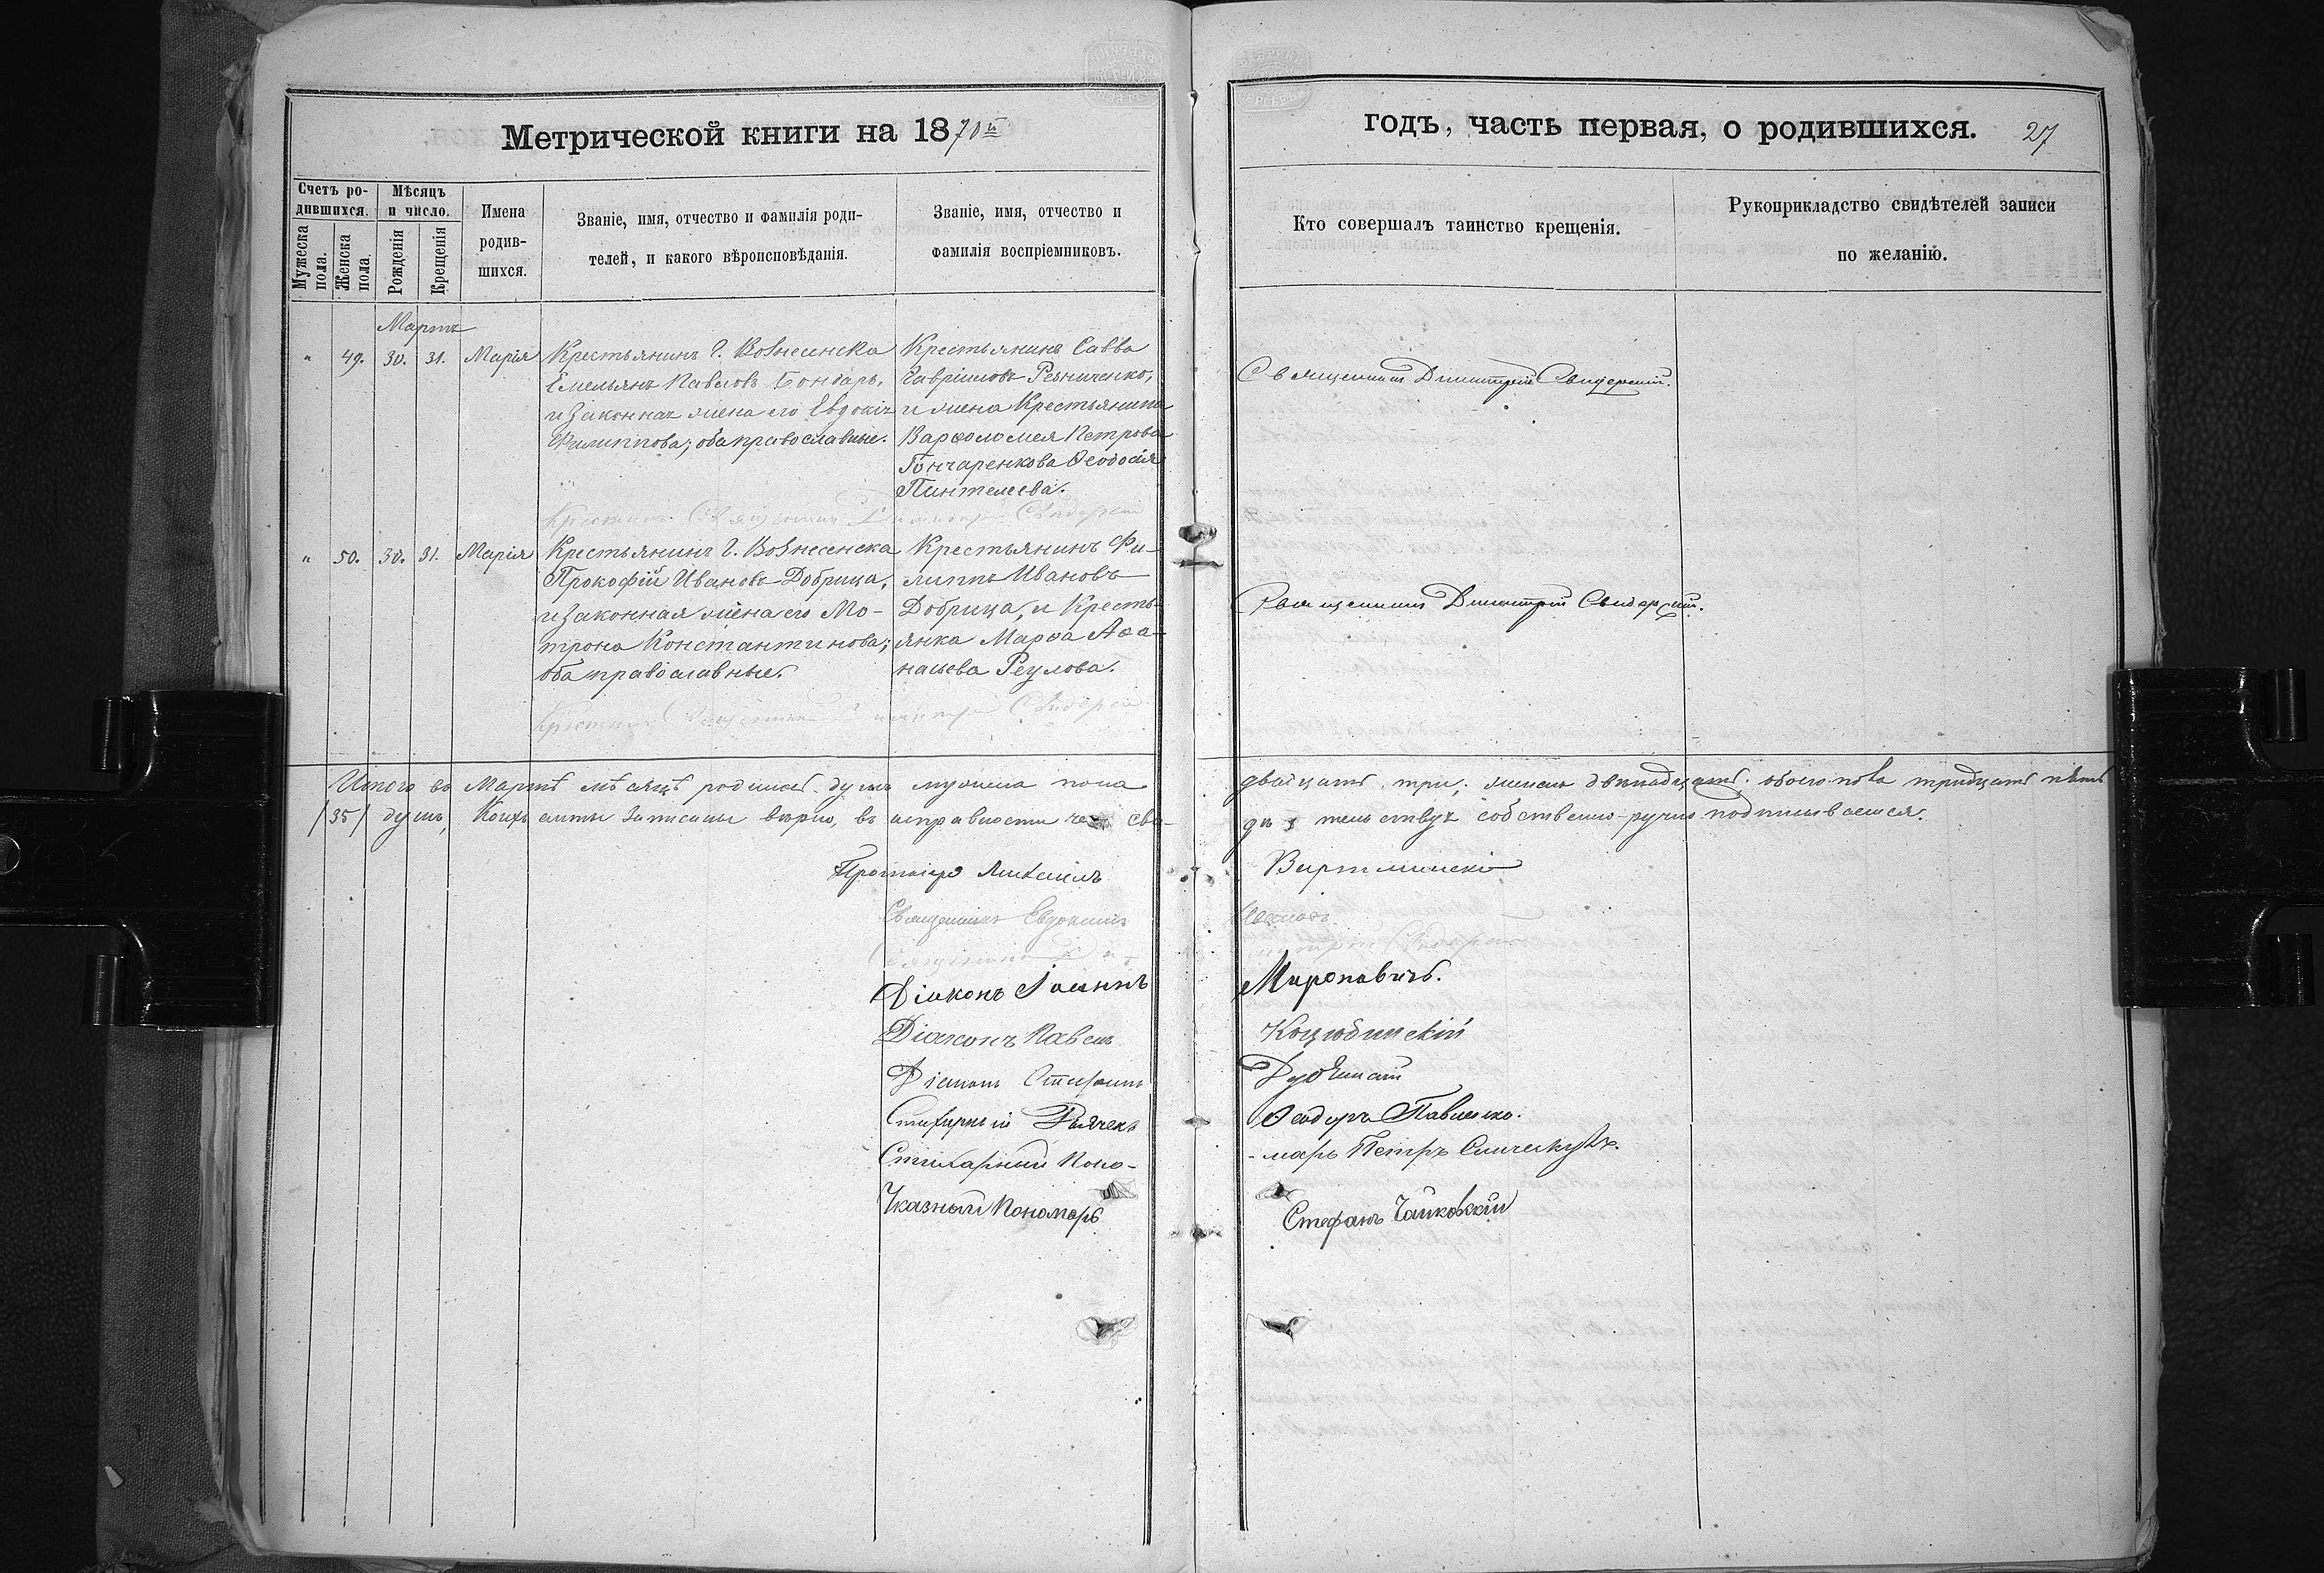 Метрической книги на 1870й
годъ, часть первая, о родившихся. 27
Счетъ родившихся.
Мѣсяцъ и число.
Мужеска пола.
Женска пола.
Рожденія
Крещенія
Имена родившихся.
Званіе, имя, отчество и фамилія родителей, и какого вѣроисповѣданія.
Званіе, имя, отчество и фамилія воспріемниковъ.
Кто совершалъ таинство крещенія.
Рукоприкладство свидѣтелей записи по желанію.
Мартъ
" 49. 30. 31. Марія
Крестьянинъ г. Вознесенска
Емельянъ Павловъ Бондарь,
и законная жена его Евдокія
Филиппова; оба православные.
Крестьянинъ Савва
Гавріиловъ Резниченко,
и жена Крестьянина
Варѳоломея Петрова
Гончаренкова Ѳеодосія
Пантелеева.
Священникъ Димитрій Свидерскій.
Священникъ Димитрій Свидерскій
" 50. 30. 31. Марія
Крестьянинъ г. Вознесенска
Прокофій Ивановъ Добрица,
и законная жена его Мо-
трона Константинова;
оба православные.
Крестьянинъ Фи-
липпъ Ивановъ
Добрица, и Кресть-
янка Марѳа Аѳа-
насьева Реулова.
Священникъ Димитрій Свидерскій.
Священникъ Димитрій Свидерскій
Итого въ Мартѣ мѣсяцѣ родилось душъ мужеска пола двадцать три, женска двѣнадцать, обоего пола тридцать пять
/35/ душъ, коихъ акты записаны вѣрно, въ исправности чего сви- дѣтельствуя собственно-ручно подписываемся.
Протоіерей Михаилъ
Священникъ Евдокимъ
Священникъ Димитрій Свидерскій
Діаконъ Іоаннъ Мироновичъ.
Діаконъ Павелъ Коцюбинскій
Діаконъ Стефанъ
Стихарный Дьячекъ Ѳеодоръ Павленко.
Стихарный Поно- -марь Петръ
Указный Пономарь Стефанъ Чайковскій